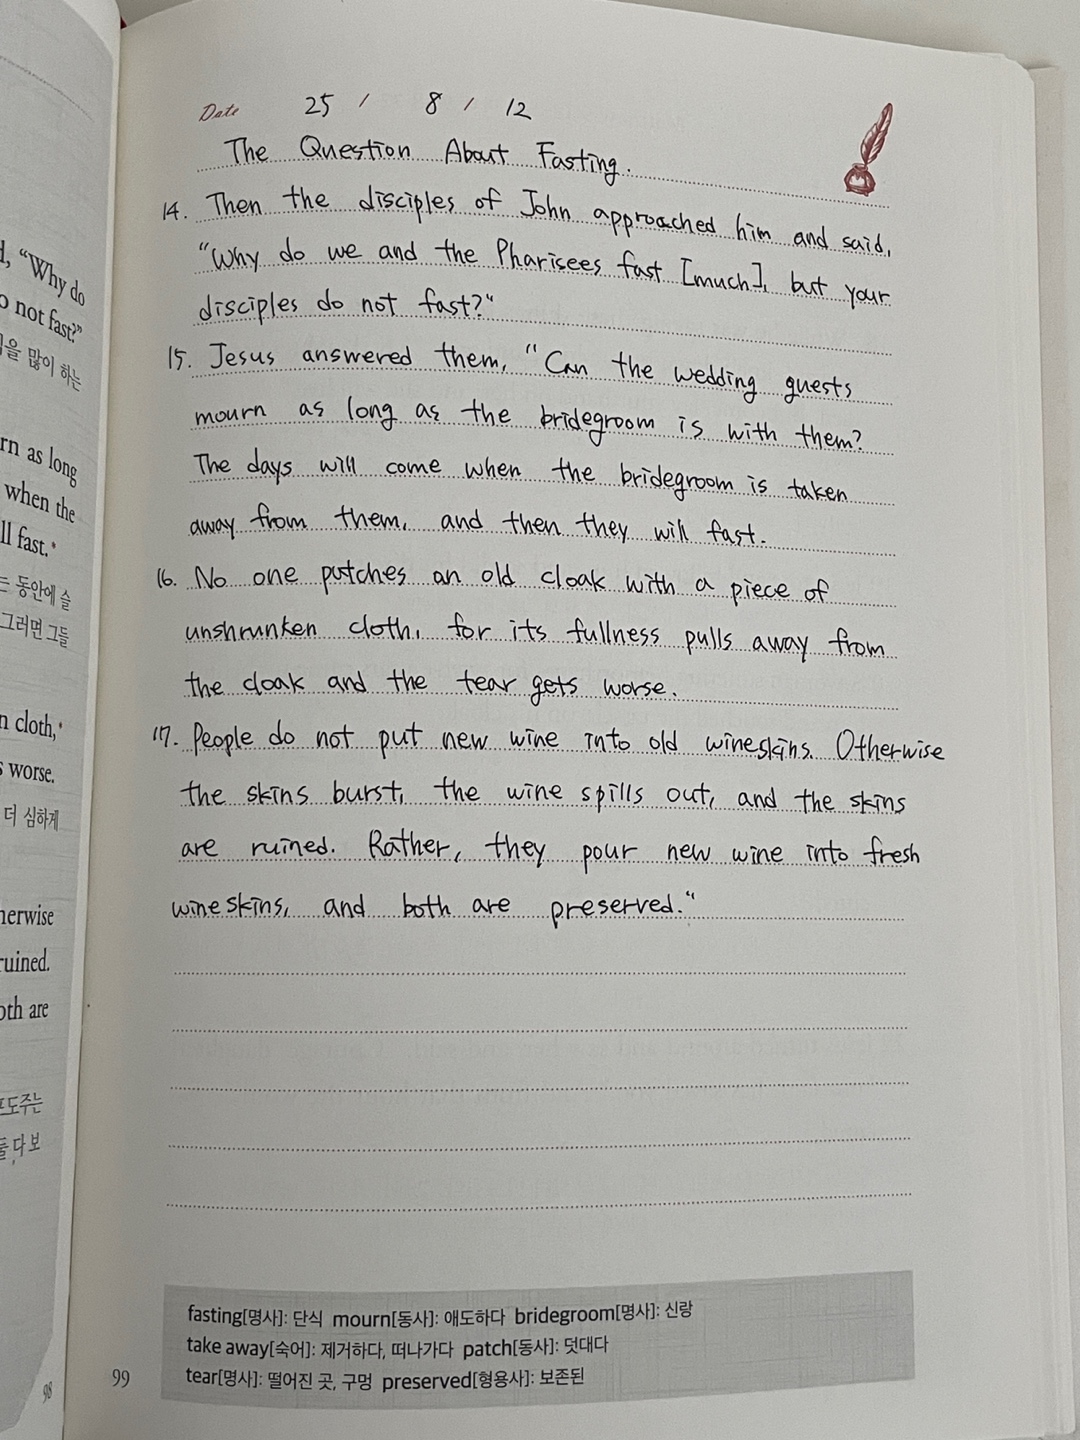 Date 25 / 8 / 12
The Question About Fasting.
14. Then the disciples of John approached him and said,
"Why do we and the Pharisees fast [much], but your
disciples do not fast?"
15. Jesus answered them, "Can the wedding guests
mourn as long as the bridegroom is with them?
The days will come when the bridegroom is taken
away from them, and then they will fast.
16. No one patches an old cloak with a piece of
unshrunken cloth, for its fullness pulls away from
the cloak and the tear gets worse.
17. People do not put new wine into old wineskins. Otherwise
the skins burst, the wine spills out, and the skins
are ruined. Rather, they pour new wine into fresh
wineskins, and both are preserved."
fasting[명사]: 단식 mourn[동사]: 애도하다 bridegroom[명사]: 신랑
take away[숙어]: 제거하다, 떠나가다 patch[동사]: 덧대다
tear[명사]: 떨어진 곳, 구멍 preserved[형용사]: 보존된
99
"Why do
not fast?"
많이 하는
as long
when the
fast.*
동안에 슬
그러면 그들
cloth,*
worse.
더 심하게
ruined.
are
98